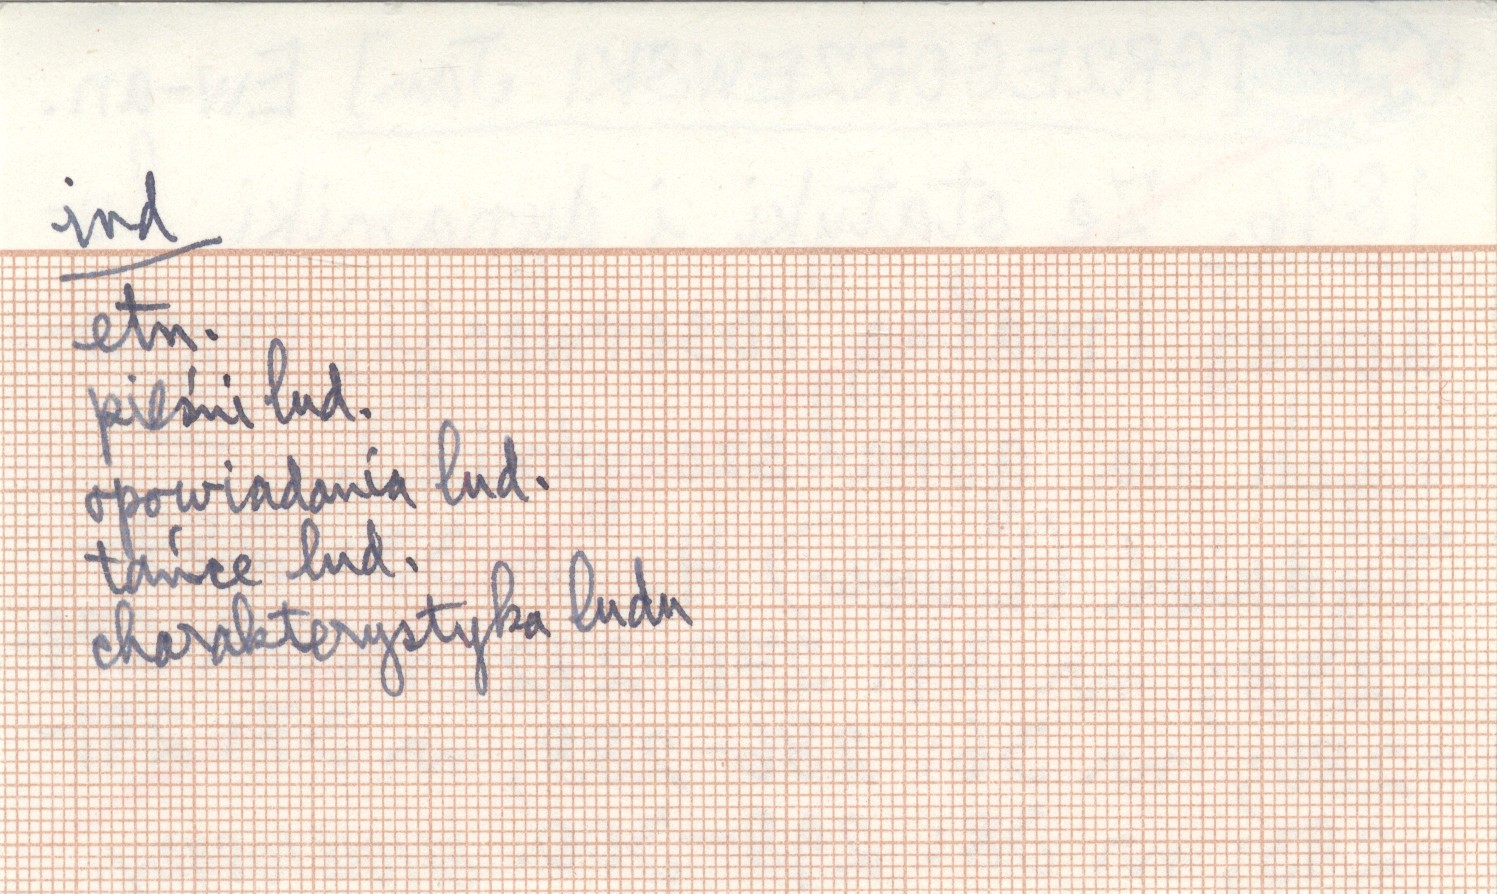 ind
etn.
pieśni lud.
opowiadania lud.
tańce lud.
charakterystyka ludu